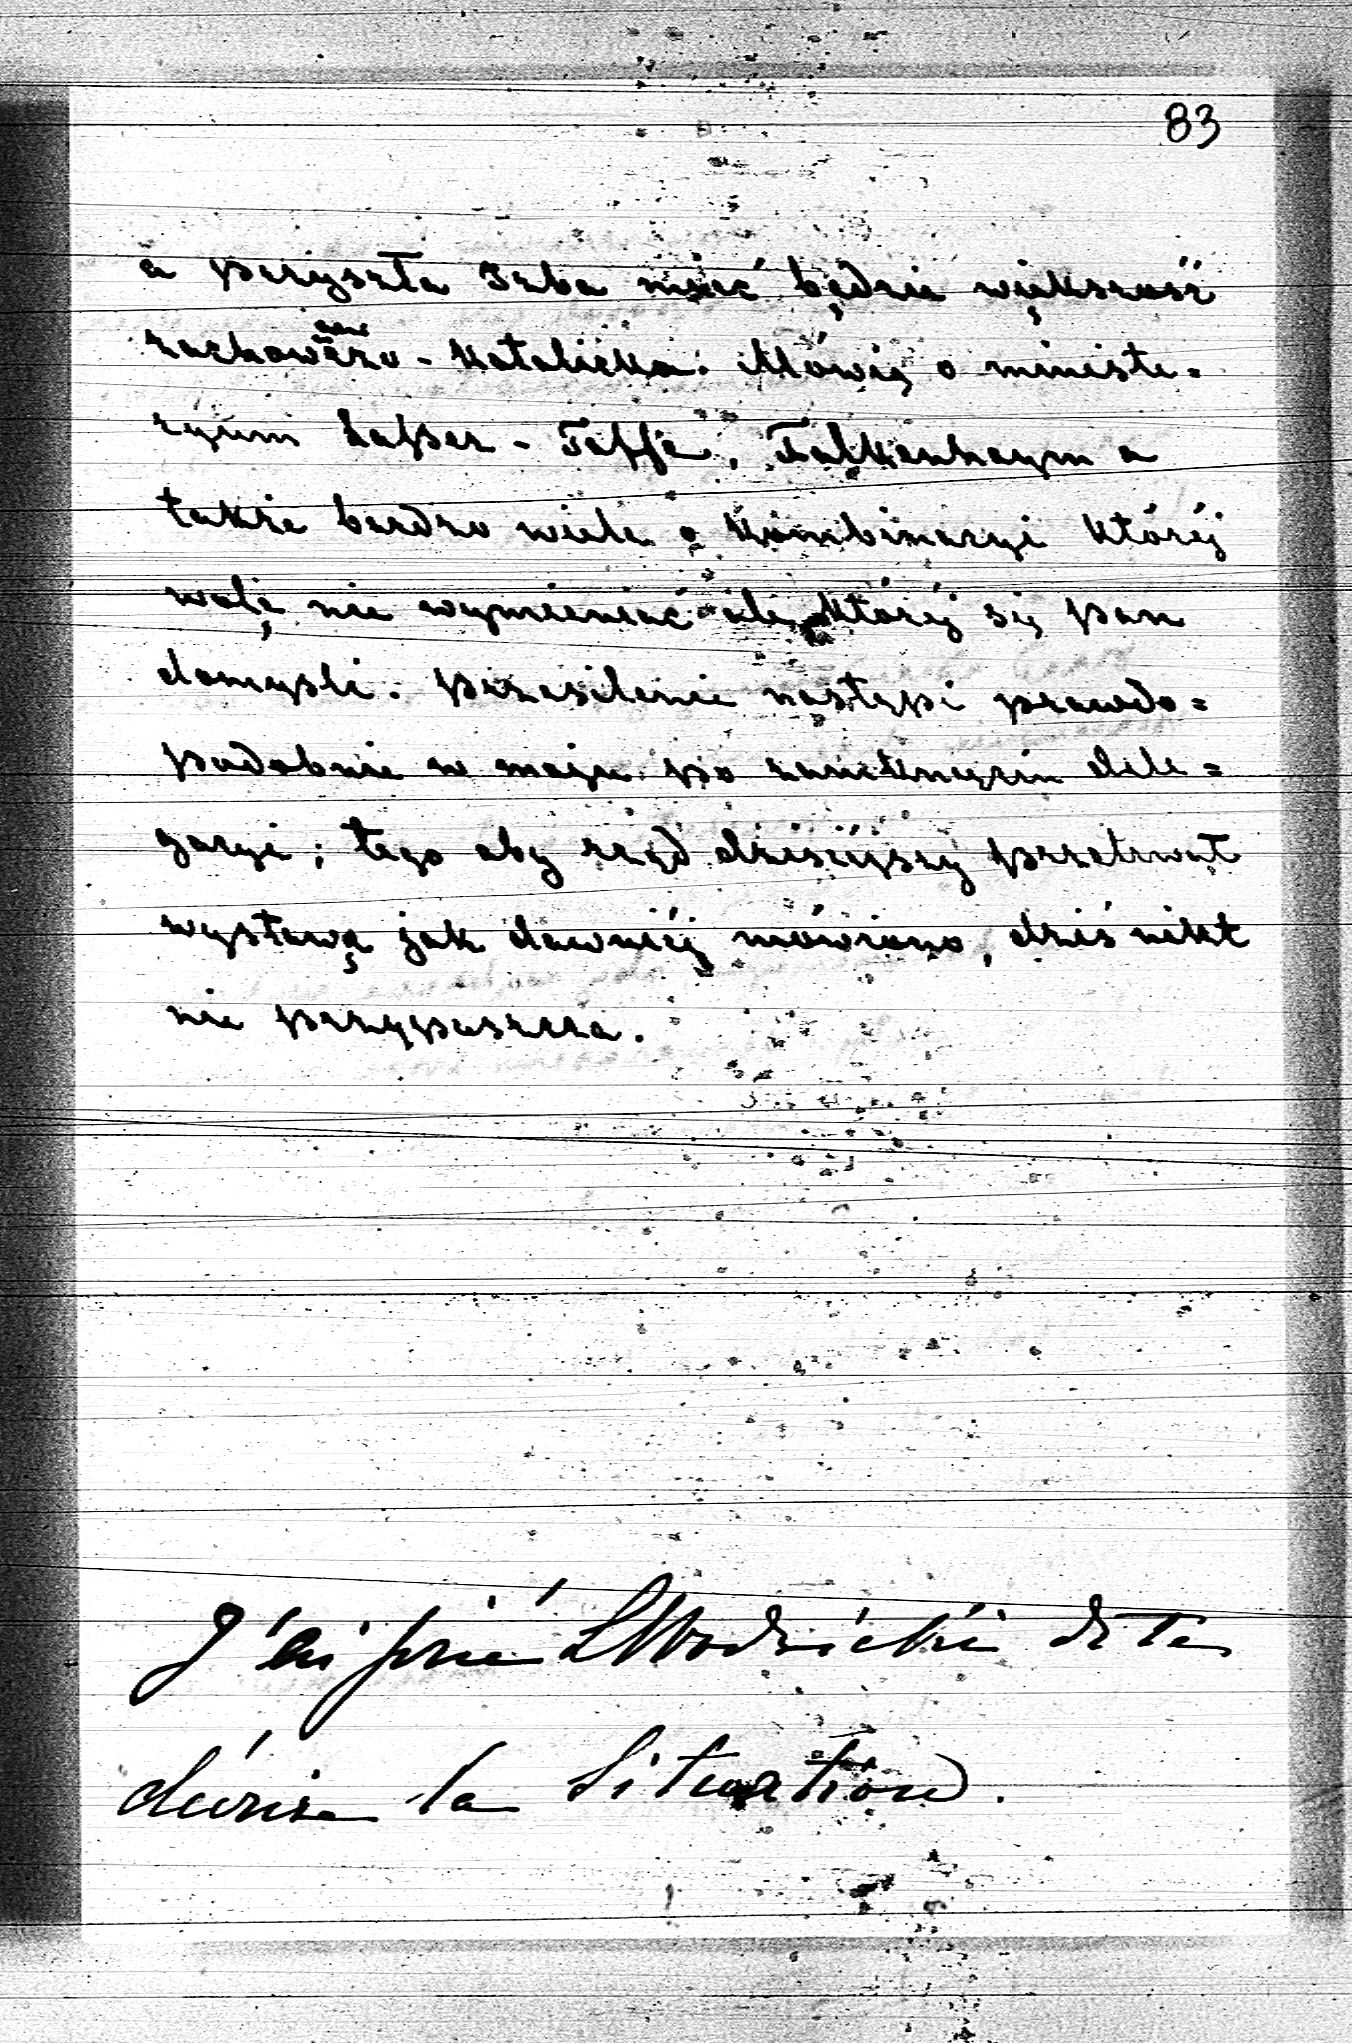 83
a przyszła Izba mieć będzie większość
zachowawczo-katolicką. Mówią o ministe=
ryum Lasser-Taffe, Falkenhaym a
także bardzo wiele o kombinacyi któréj
wolę nie wymieniać ale któréj się pan
domyśli. Przesilenie nastąpi prawdo=
podobnie w maju po zamknięciu dele=
gacyi; tego aby rząd dzisiejszy przetrwał
wystawę jak dawniéj mówiono, dziś nikt
nie przypuszcza.
J'ai prié LWodzicki de te
décrire la Situation.